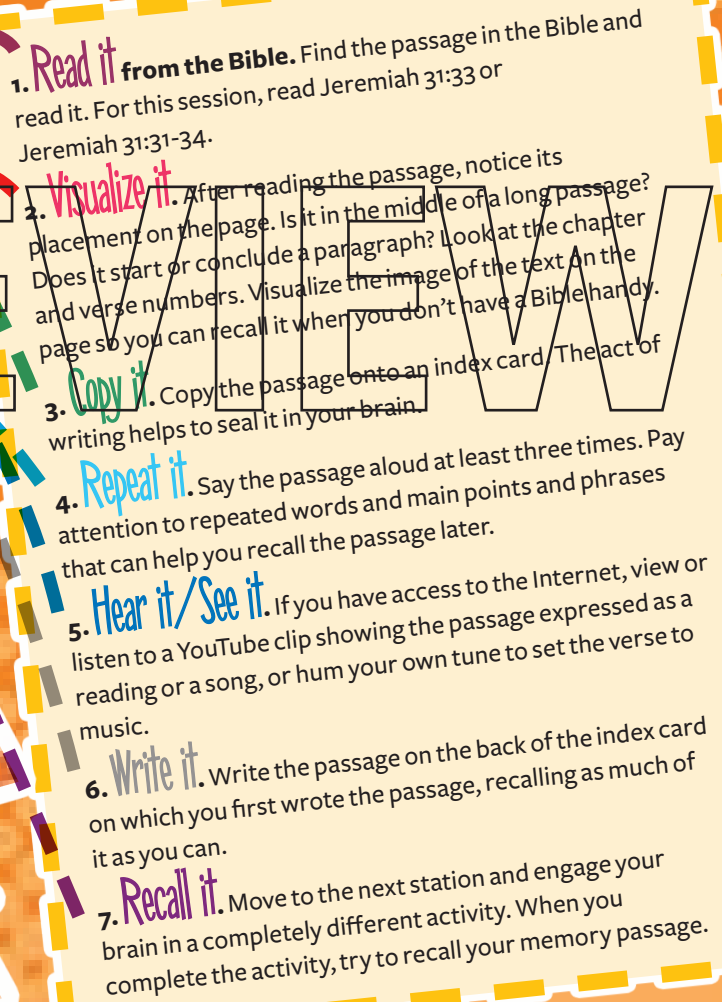 1. Read it from the Bible. Find the passage in the Bible and
read it. For this session, read Jeremiah 31:33 or
Jeremiah 31:31-34.
2. Visualize it. After reading the passage, notice its
placement on the page. Is it in the middle of a long passage?
Does it start or conclude a paragraph? Look at the chapter
and verse numbers. Visualize the image of the text on the
page so you can recall it when you don't have a Bible handy.
3. Copy it. Copy the passage onto an index card. The act of
writing helps to seal it in your brain.
4. Repeat it. Say the passage aloud at least three times. Pay
attention to repeated words and main points and phrases
that can help you recall the passage later.
5. Hear it/See it. If you have access to the Internet, view or
listen to a YouTube clip showing the passage expressed as a
reading or a song, or hum your own tune to set the verse to
music.
6. Write it. Write the passage on the back of the index card
on which you first wrote the passage, recalling as much of
it as you can.
7. Recall it. Move to the next station and engage your
brain in a completely different activity. When you
complete the activity, try to recall your memory passage.
VIEW